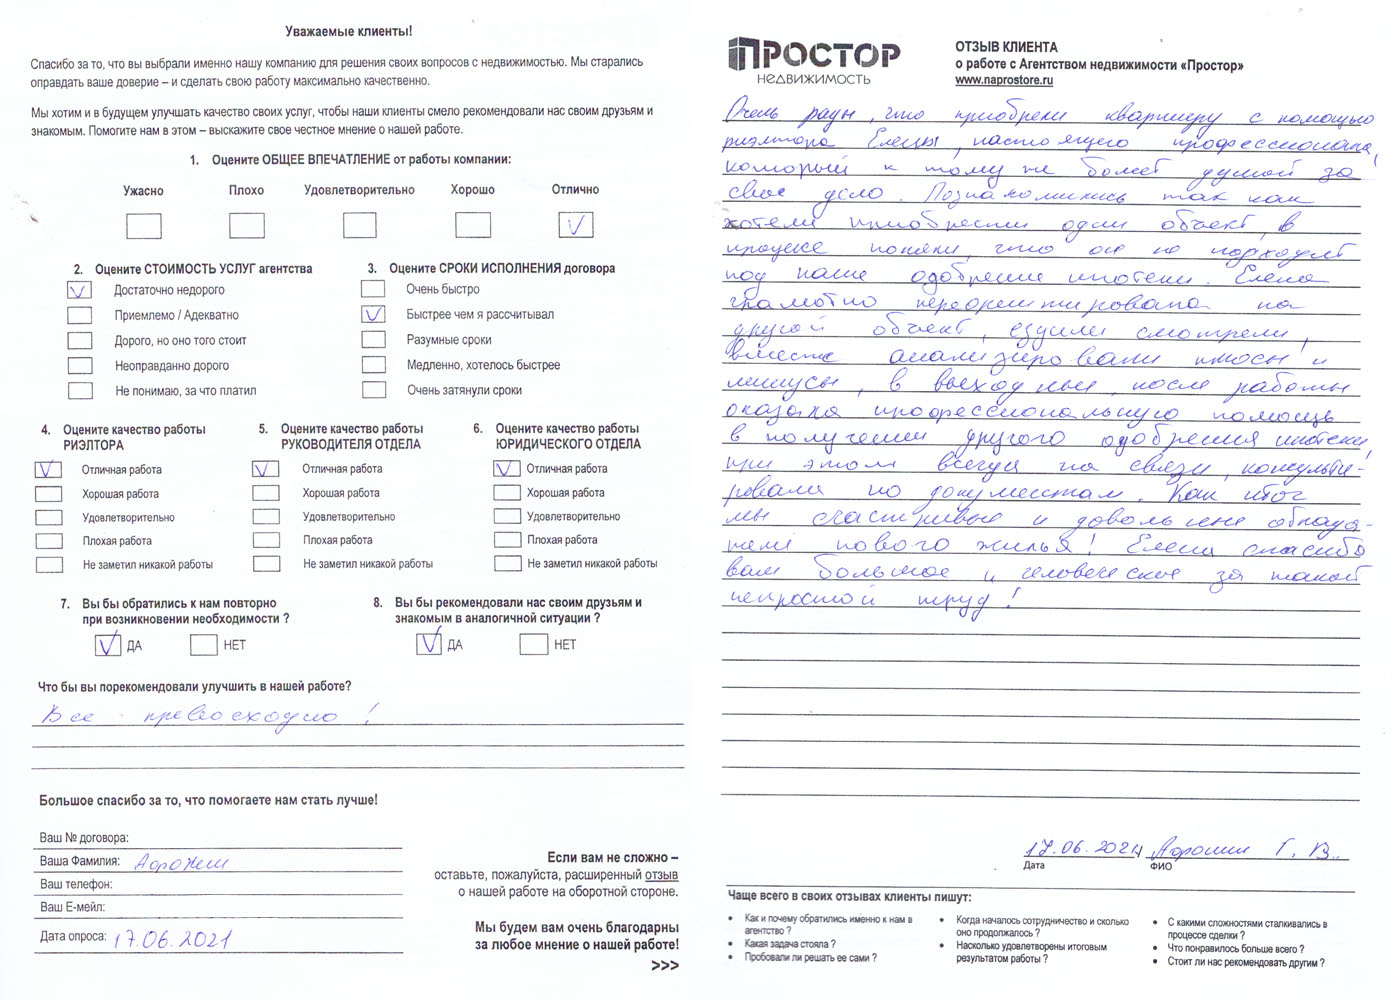 Уважаемые клиенты!
Спасибо за то, что вы выбрали именно нашу компанию для решения своих вопросов с недвижимостью. Мы старались
оправдать ваше доверие – и сделать свою работу максимально качественно.
Мы хотим и в будущем улучшать качество своих услуг, чтобы наши клиенты смело рекомендовали нас своим друзьям и
знакомым. Помогите нам в этом – выскажите свое честное мнение о нашей работе.
1. Оцените ОБЩЕЕ ВПЕЧАТЛЕНИЕ от работы компании:
Ужасно Плохо Удовлетворительно Хорошо Отлично
2. Оцените СТОИМОСТЬ УСЛУГ агентства
Достаточно недорого
Приемлемо / Адекватно
Дорого, но оно того стоит
Неоправданно дорого
Не понимаю, за что платил
3. Оцените СРОКИ ИСПОЛНЕНИЯ договора
Очень быстро
Быстрее чем я рассчитывал
Разумные сроки
Медленно, хотелось быстрее
Очень затянули сроки
4. Оцените качество работы
РИЭЛТОРА
Отличная работа
Хорошая работа
Удовлетворительно
Плохая работа
Не заметил никакой работы
5. Оцените качество работы
РУКОВОДИТЕЛЯ ОТДЕЛА
Отличная работа
Хорошая работа
Удовлетворительно
Плохая работа
Не заметил никакой работы
6. Оцените качество работы
ЮРИДИЧЕСКОГО ОТДЕЛА
Отличная работа
Хорошая работа
Удовлетворительно
Плохая работа
Не заметил никакой работы
7. Вы бы обратились к нам повторно
при возникновении необходимости ?
ДА НЕТ
8. Вы бы рекомендовали нас своим друзьям и
знакомым в аналогичной ситуации ?
ДА НЕТ
Что бы вы порекомендовали улучшить в нашей работе?
Все превосходно!
Большое спасибо за то, что помогаете нам стать лучше!
Ваш № договора:
Ваша Фамилия:
Ваш телефон:
Ваш E-мейл:
Дата опроса: 17.06.2021
Если вам не сложно –
оставьте, пожалуйста, расширенный отзыв
о нашей работе на оборотной стороне.
Мы будем вам очень благодарны
за любое мнение о нашей работе!
>>>
ПРОСТОР
НЕДВИЖИМОСТЬ
ОТЗЫВ КЛИЕНТА
о работе с Агентством недвижимости «Простор»
www.naprostore.ru
Очень рады, что приобрели квартиру с помощью
риэлтора Елены, настоящего профессионала,
который к тому же болеет душой за
свое дело. Познакомились так как
хотели приобрести один объект, в
процессе поняли, что он не подходит
под наше одобрение ипотеки. Елена
грамотно переориентировала на
другой объект, ездили смотрели,
вместе анализировали плюсы и
минусы, в выходные, после работы
оказала профессиональную помощь
в получении другого одобрения ипотеки,
при этом всегда на связи, консульти-
ровала по документам. Как итог
мы счастливые и довольные облада-
тели нового жилья! Елена спасибо
вам большое и человеческое за такой
непростой труд!
17.06.2021 Г. В.
Дата ФИО
Чаще всего в своих отзывах клиенты пишут:
• Как и почему обратились именно к нам в
агентство ?
• Какая задача стояла ?
• Пробовали ли решать ее сами ?
• Когда началось сотрудничество и сколько
оно продолжалось ?
• Насколько удовлетворены итоговым
результатом работы ?
• С какими сложностями сталкивались в
процессе сделки ?
• Что понравилось больше всего ?
• Стоит ли нас рекомендовать другим ?